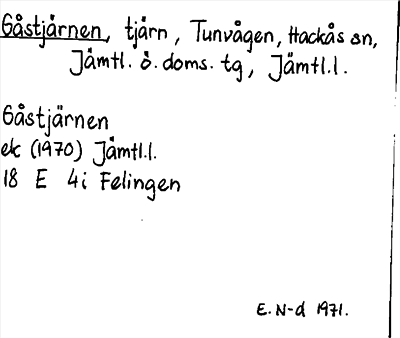 Gåstjärnen, tjärn, Tunvågen, Hackås sn,
Jämtl. ö. doms. tg, Jämtl.l.
Gåstjärnen
ek (1970) Jämtl.l.
18 E 4i Felingen
E. N-d 1971.